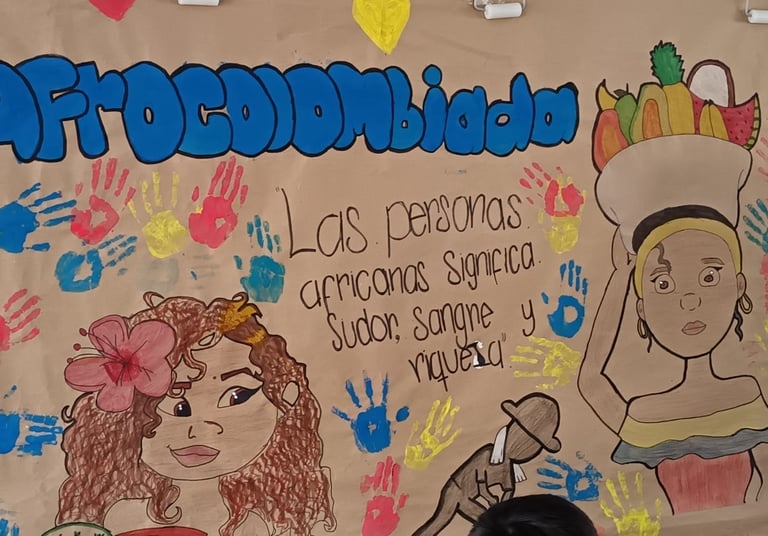 afrocolombiada
"Las personas
africanas significa
sudor, sangre y
riqueza".